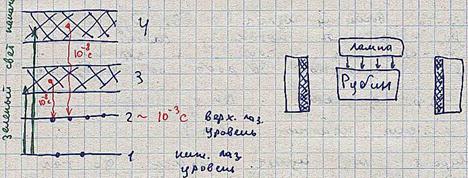 зеленый свет накачки
4
10⁻⁸ с
3
10⁻⁸ с
2 ~ 10⁻³ с
верх. лаз.
уровень
1
ниж. лаз.
уровень
лампа
Рубин